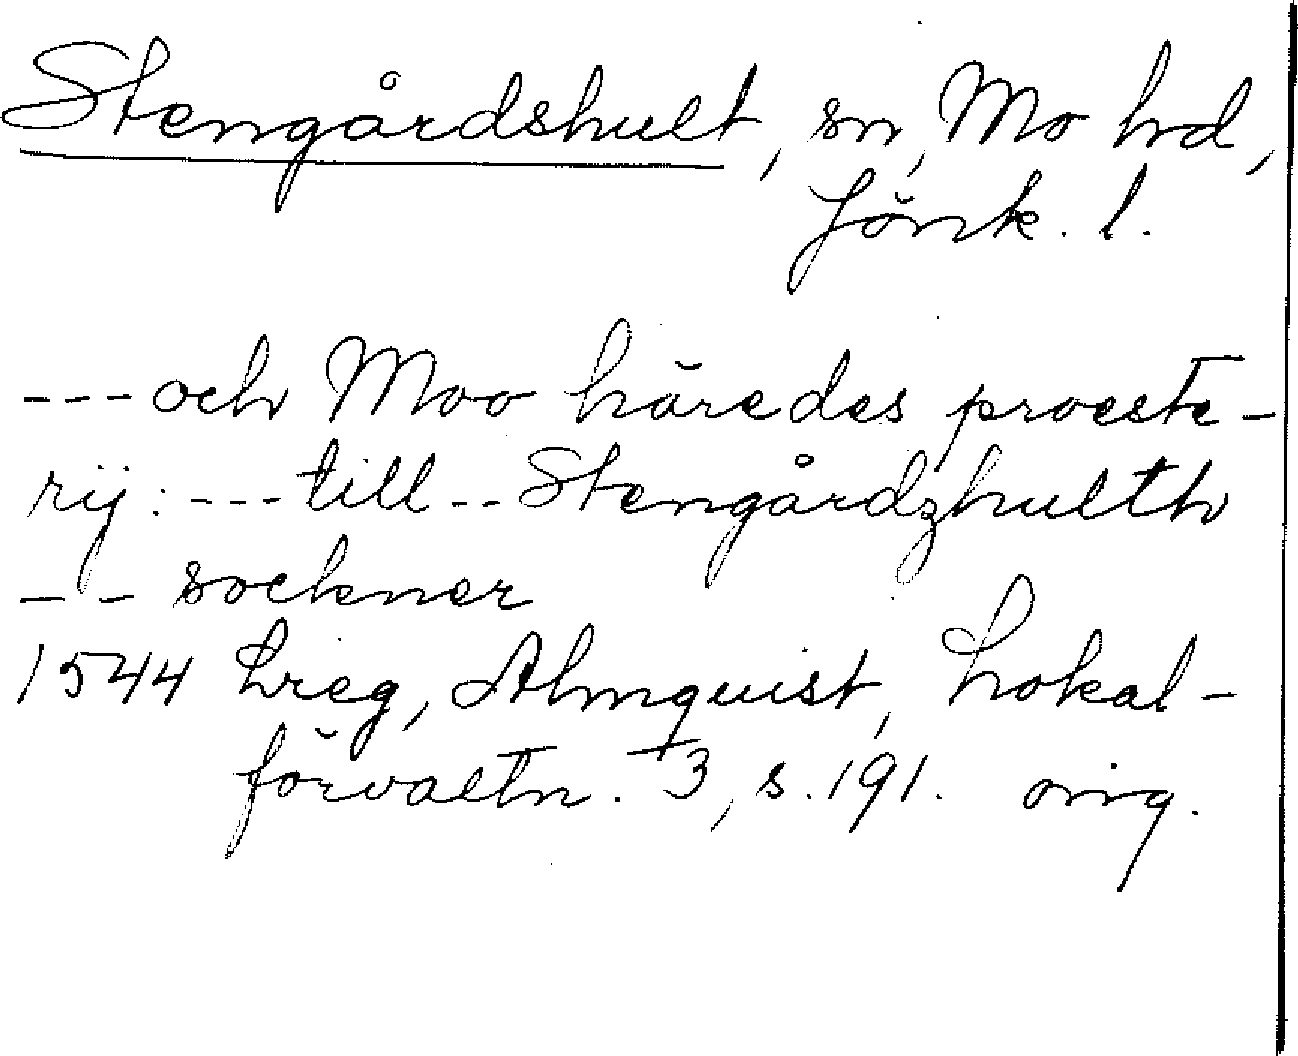 Stengårdshult, sn, Mo hd,
Jönk. l.
--- och Moo häredes proeste-
rij: --- till -- Stengårdzhullth
-- sockner
1544 Lreg, Almquist, Lokal-
förvaltn. 3, s. 191. orig.